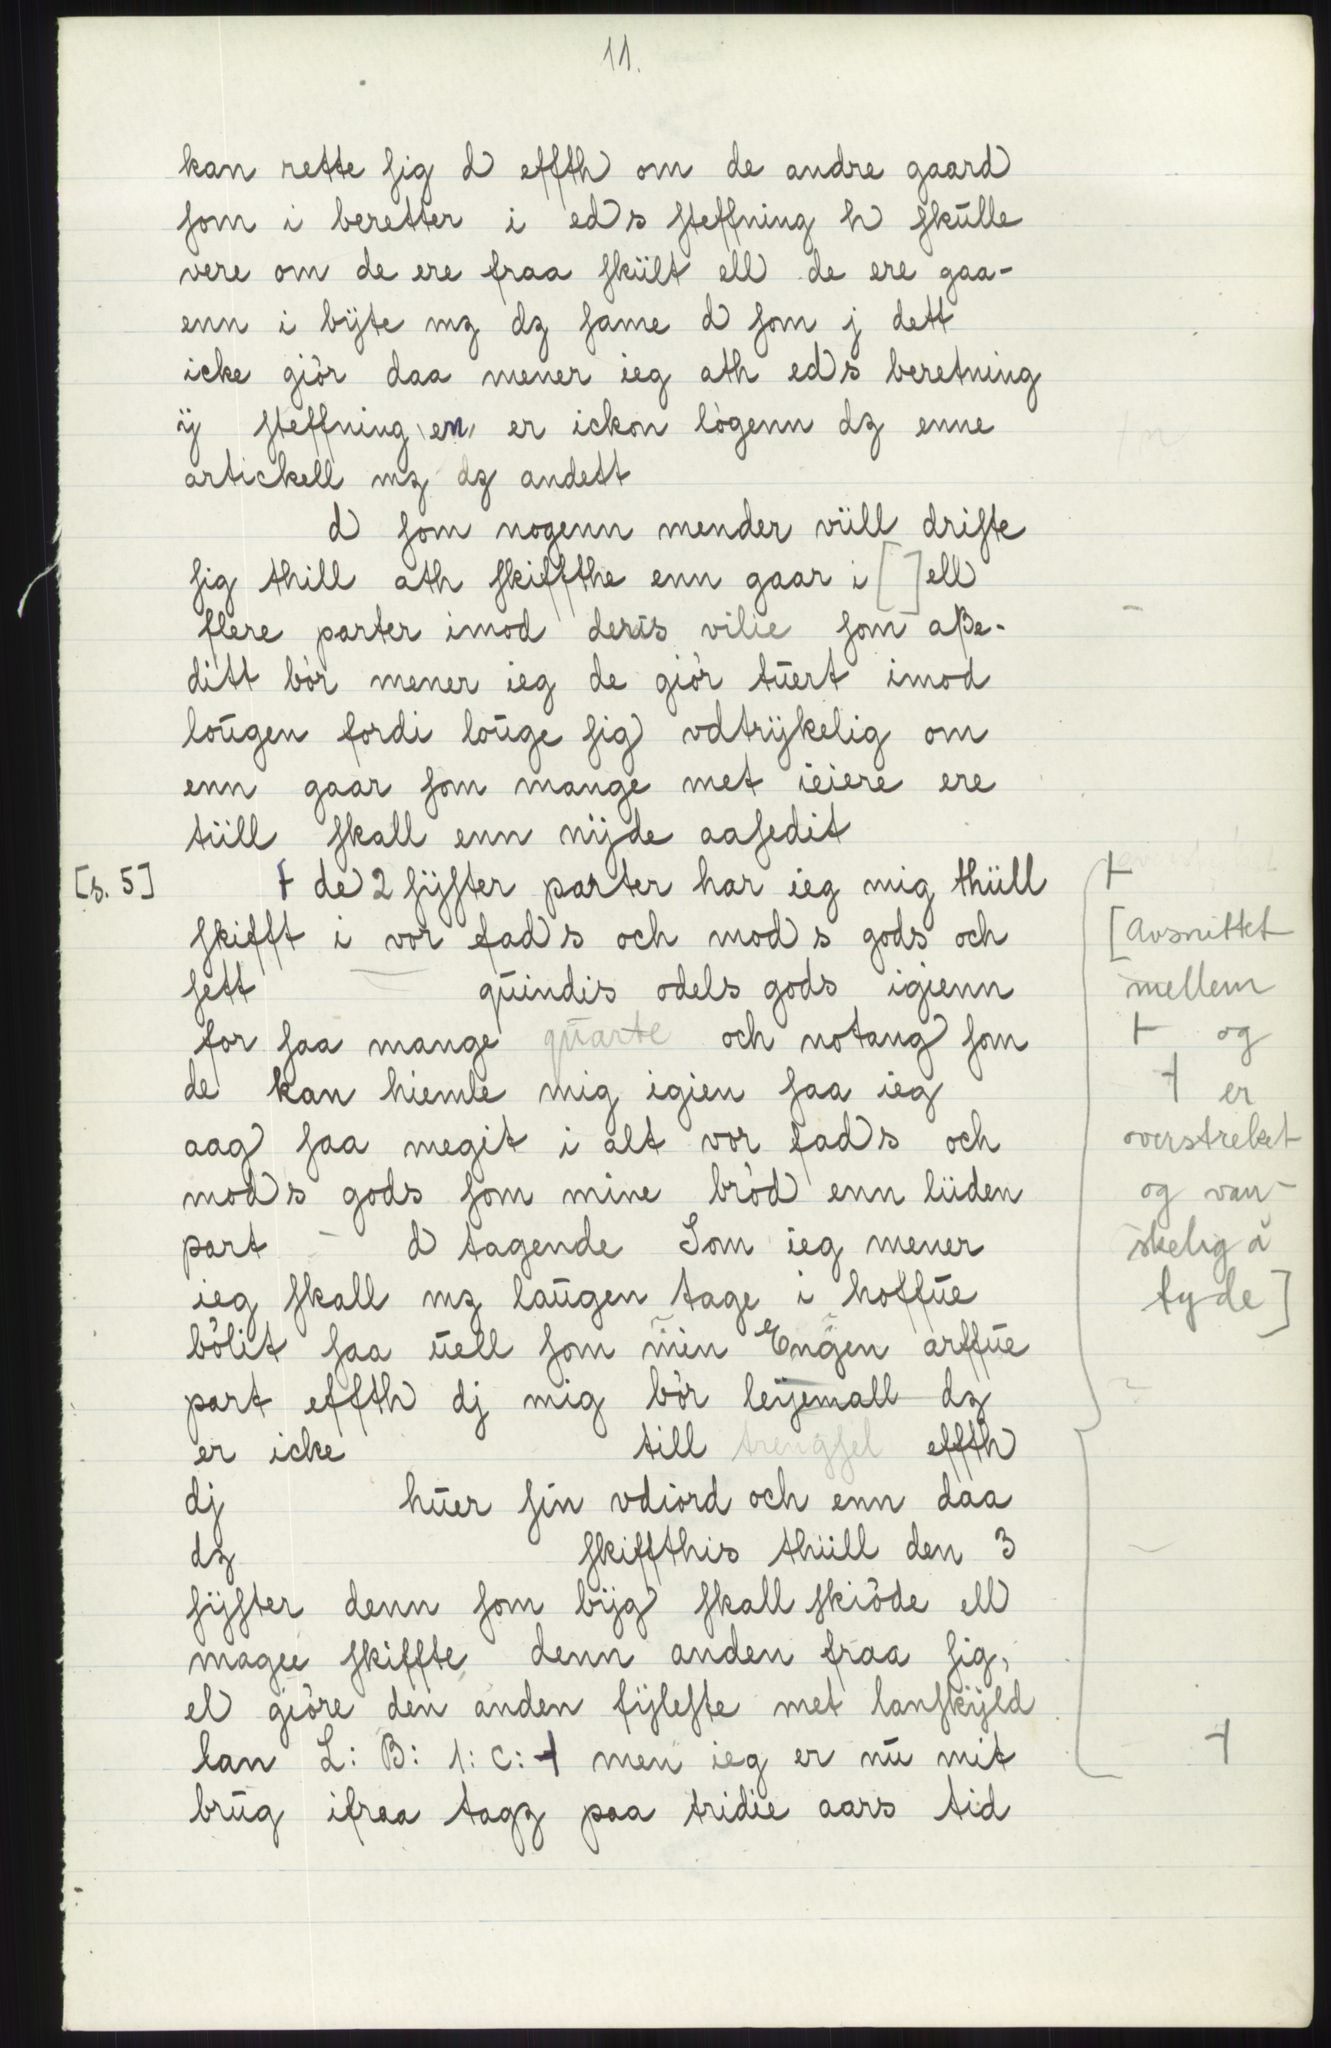 11.
kan rette sig d effth om de andre gaard
som i beretter i eds steffning h skulle
vere om de ere fraa skült ell de ere gaa-
enn i bÿte mz dz same d som j dett
icke giör daa mener ieg ath eds beretning
ÿ steffning en er ickon lögenn dz enne
artickell mz dz andett
d som nogenn mender vüll driste
sig thill ath skiffthe enn gaar i [ ] ell
flere parter imod deris vilie som aße-
ditt bör mener ieg de giör tuert imod
lougen fordi louge sig vdtrÿkelig om
enn gaar som mange met ieiere ere
tüll skall enn nÿde aasedit
[s. 5] ⊢ de 2 sÿster parter har ieg mig thüll
skifft i vor fads och mods gods och
sett quindis odels gods igienn
for saa mange quarte och notang som
de kan hiemle mig igien saa ieg
aag saa megit i alt vor fads och
mods gods som mine bröd enn lüden
part d tagende Som ieg mener
ieg skall mz laugen tage i hoffue
bölit saa uell som min Engen arffue
part effth dj mig bör leÿemall dz
er icke till trengsel effth
dj huer sin vdiord och enn daa
dz skiffthis thüll den 3
sÿster denn som bÿg skall skiöde ell
magee skiffte denn anden fraa sig,
el giöre den anden fÿleste met lanskÿld
lan L: B: 1: C: ⊣ men ieg er nu mit
brug ifraa tagz paa tridie aars tid
⊢
[Avsnittet
mellem
⊢ og
⊣ er
overstreket
og van-
skelig å
tyde]
⊣